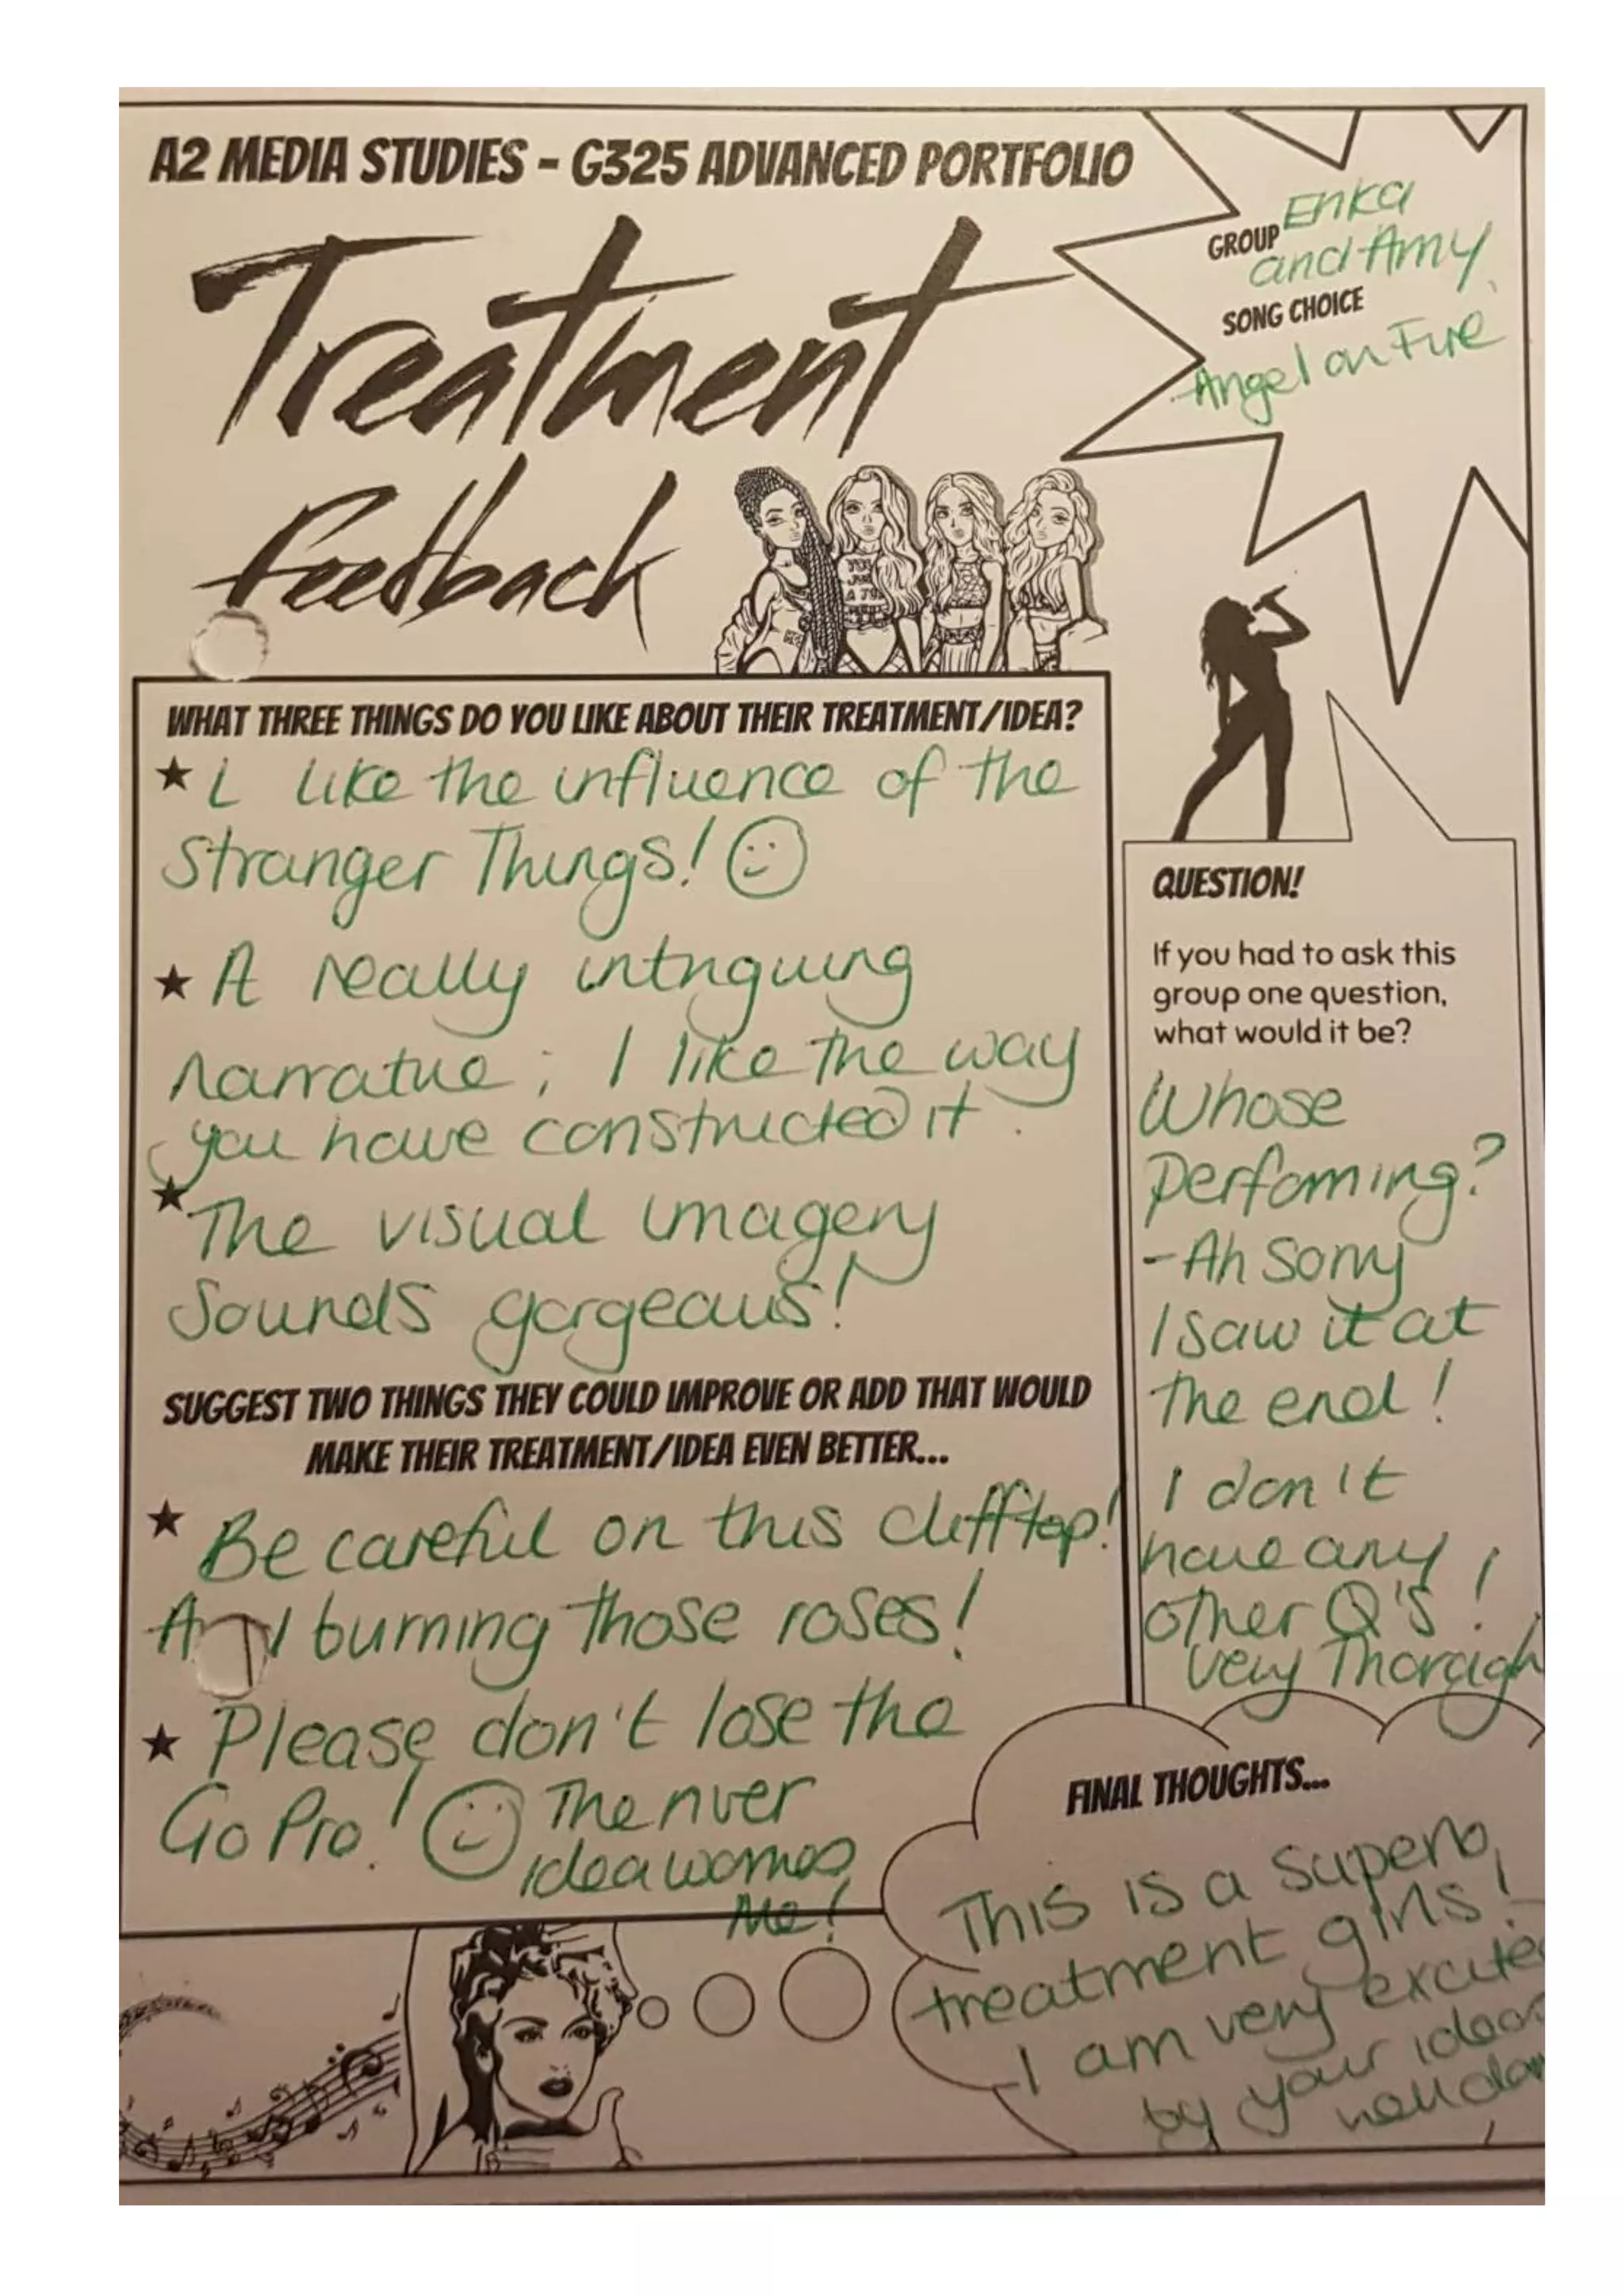 A2 MEDIA STUDIES - G325 ADVANCED PORTFOLIO
Treatment
Feedback
GROUP Erika
and Amy
SONG CHOICE
Angel on Fire
WHAT THREE THINGS DO YOU LIKE ABOUT THEIR TREATMENT/IDEA?
★ I like the influence of the
Stranger Things! ☺
★ A really intriguing
narrative; I like the way
you have constructed it.
★ The visual imagery
Sounds gorgeous!
SUGGEST TWO THINGS THEY COULD IMPROVE OR ADD THAT WOULD
MAKE THEIR TREATMENT/IDEA EVEN BETTER...
★ Be careful on this clifftop!
And burning those roses!
★ Please don't lose the
Go Pro! ☺ The river
idea worries
Me!
QUESTION!
If you had to ask this
group one question,
what would it be?
Whose
perfoming?
- Ah Sorry
I saw it at
the end!
I don't
have any
other Q's!
Very Thorough
FINAL THOUGHTS...
This is a Superb
treatment girls!
I am very excited
by your ideas